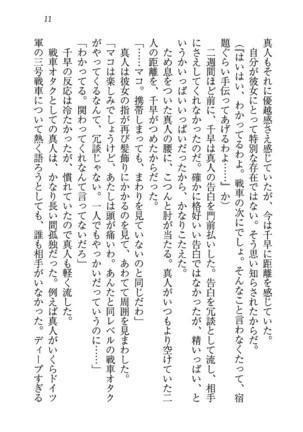 11
真人もそれに優越感さえ感じていたが、今は千早に距離を感じていた。
自分が彼女にとって特別な存在ではない。そう思い知らされたからだ。
(「はいはい、わかってるわよ。戦車の次にでしょ。そんなこと言わなくたって、宿
題ぐらい手伝ってあげるわよ……」か)
二週間ほど前に、千早は真人の告白を門前払いした。告白を冗談として流し、相手
にさえしてくれなかったのだ。確かに格好いい告白ではなかったが、精いっぱい、と
いうかいっぱいいっぱいだったから、かなりこたえた。
ため息をついた真人の腰に、こつんと肘が当たる。千早が真人がいつもより空けていた二
人の距離を、千早から詰めたからだった。
「……マコ。携帯してても、まわりを見ていないのと同じだわ」
真人は彼女の指が再び髪飾りにかかるのを見て、あわてて周囲を見まわした。
「マコは楽しみでしょうけど、あたしは頭が痛いわ。あんたと同レベルの戦車オタク
がやってくるなんて、冗談じゃない。一人でもやっかいだっていうのに……」
「わかってる。関わってくれなんて言ってないだろ」
千早の反応は冷たかったが、慣れていたので真人も軽く流した。
戦車オタクとしての真人は、かなり長い間孤独だった。例えば真人がいくらドイツ
軍の三号戦車について熱く語ろうとしても、誰も相手がいなかった。ディープすぎる